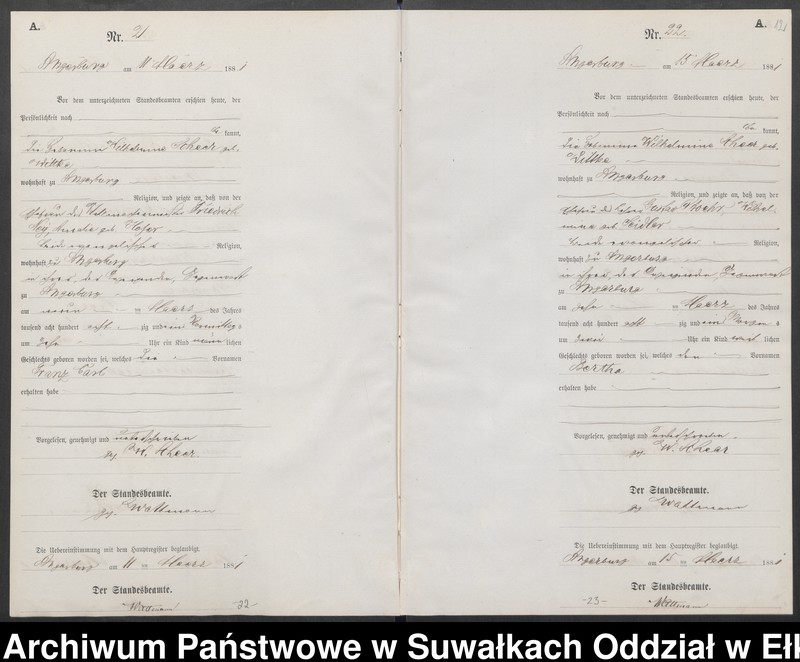 A.
Nr. 21
Angerburg am 11 Maerz 1881
Vor dem unterzeichneten Standesbeamten erschien heute, der
Persönlichkeit nach
kannt,
die Hebamme Wilhelmine Schaar geb.
Wittke
wohnhaft zu Angerburg
Religion, und zeigte an, daß von der
Ehefrau des Friedrich
geb. Hofer
beide evangelischer Religion,
wohnhaft zu Angerburg
in ihrer, des Ehegatten, Gegenwart
zu Angerburg
am neun ten Maerz des Jahres
tausend acht hundert acht zig und ein Vormittags
um zehn Uhr ein Kind männ lichen
Geschlechts geboren worden sei, welches die Vornamen
Franz Carl
erhalten habe
Vorgelesen, genehmigt und unterschrieben
gez W. Schaar.
Der Standesbeamte.
gez. Wattmann
Die Uebereinstimmung mit dem Hauptregister beglaubigt.
Angerburg am 11 ten Maerz 1881
Der Standesbeamte.
Wattmann
-22-
A. 121
Nr. 22.
Angerburg am 15 Maerz 1881
Vor dem unterzeichneten Standesbeamten erschien heute, der
Persönlichkeit nach
kannt,
die Hebamme Wilhelmine Schaar geb.
Wittke
wohnhaft zu Angerburg
Religion, und zeigte an, daß von der
Ehefrau des Gustav Wilhel-
mine geb
beide evangelischer Religion,
wohnhaft zu Angerburg
in ihrer, des Ehegatten, Gegenwart
zu Angerburg
am zehn ten Maerz des Jahres
tausend acht hundert acht zig und ein
um zwei Uhr ein Kind weib lichen
Geschlechts geboren worden sei, welches den Vornamen
Bertha
erhalten habe
Vorgelesen, genehmigt und unterschrieben.
gez W. Schaar
Der Standesbeamte.
gez Wattmann
Die Uebereinstimmung mit dem Hauptregister beglaubigt.
Angerburg am 15 ten Maerz 1881
Der Standesbeamte.
Wattmann
-23-
Archiwum Państwowe w Suwałkach Oddział w Ełk